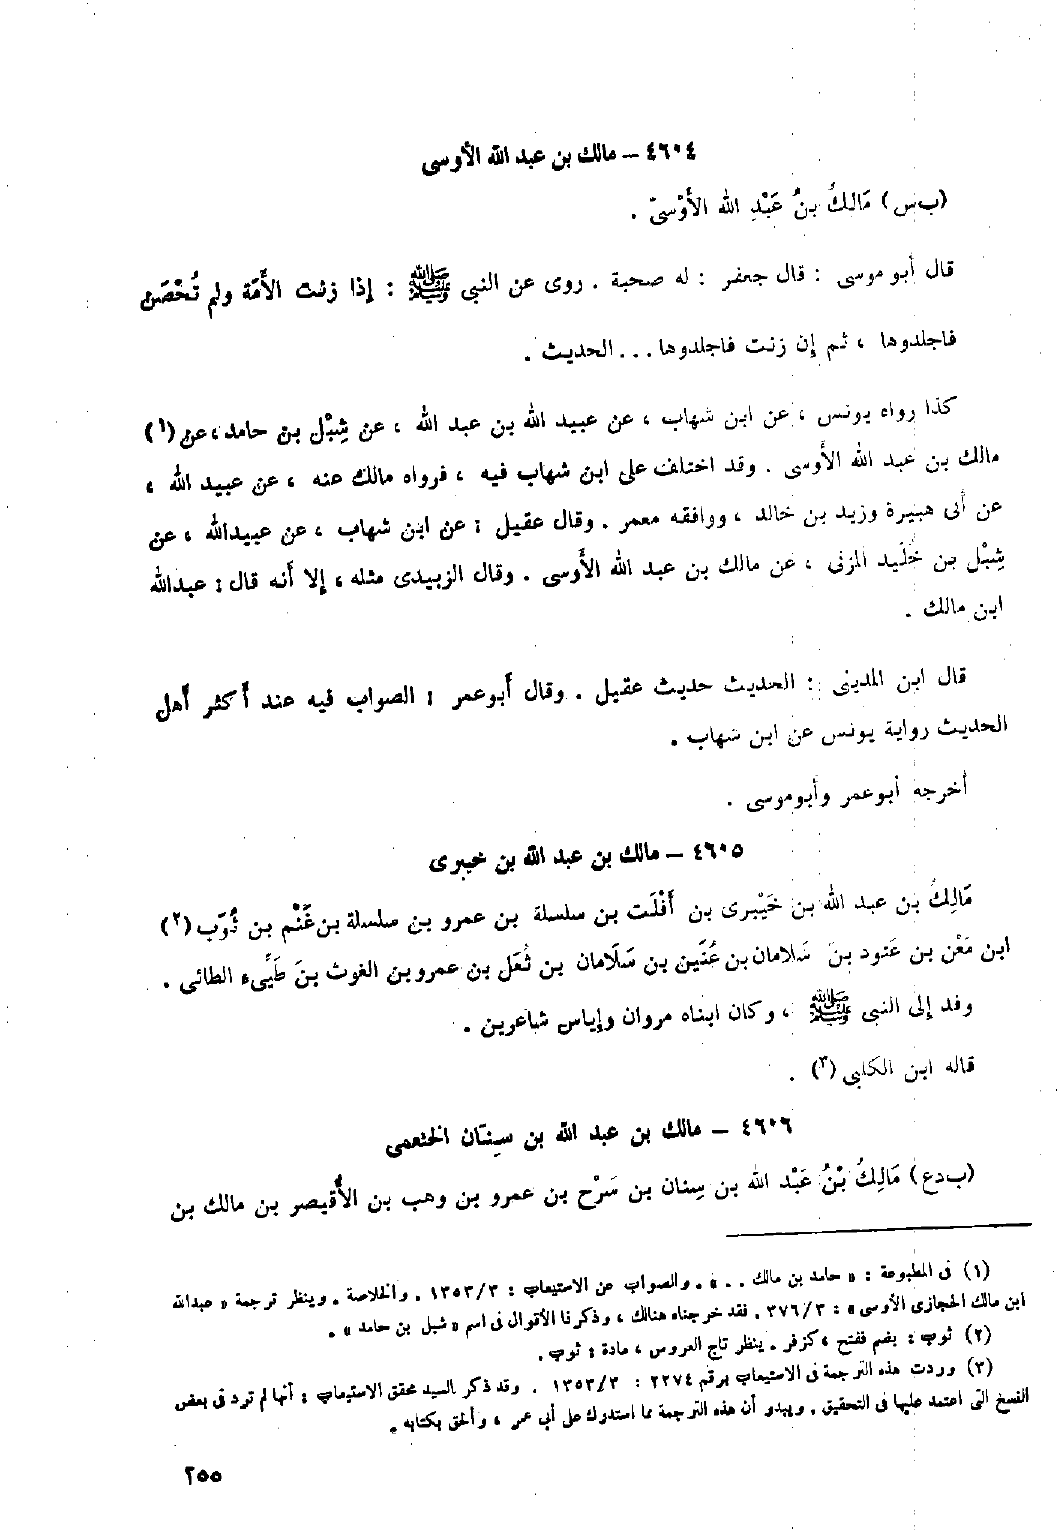 ٤٦٠٤ – مالك بن عبد الله الأوسى
(ب س) مَالكُ بنُ عَبْدِ الله الأَوْسىّ .
قال أبو موسى : قال جعفر : له صحبة . روى عن النبي ﷺ : إذا زنت الأَمَة ولم تُحْصَن
فاجلدوها ، ثم إن زنت فاجلدوها ... الحديث .
كذا رواه يونس ، عن ابن شهاب ، عن عبيد الله بن عبد الله ، عن شِبْل بن حامد ، عن (١)
مالك بن عبد الله الأوسى . وقد اختلف على ابن شهاب فيه ، فرواه مالك عنه ، عن عبيد الله ،
عن أبى هريرة وزيد بن خالد ، ووافقه معمر . وقال عقيل : عن ابن شهاب ، عن عبيدالله ، عن
شِبْل بن خُلَيد المزنى ، عن مالك بن عبد الله الأَوسى . وقال الزبيدى مثله ، إلا أَنه قال : عبدالله
ابن مالك .
قال ابن المدينى : الحديث حديث عقيل . وقال أَبوعمر : الصواب فيه عند أَكثر أَهل
الحديث رواية يونس عن ابن شهاب .
أخرجه أبوعمر وأبوموسى .
٤٦٠٥ – مالك بن عبد الله بن خيبرى
مَالِكُ بن عبد الله بن خَيْبرى بن أَفْلَت بن سلسلة بن عمرو بن سلسلة بن غَنْم بن ثُوَب (٢)
ابن مَعْن بن عَتود بنَ سَلامان بن عُنَين بن سَلَامان بن ثُعَل بن عمروبن الغوث بنَ طَيِّىء الطائى .
وفد إلى النبى ﷺ ، وكان ابناه مروان وإياس شاعرين .
قاله ابن الكلبى (٣) .
٤٦٠٦ – مالك بن عبد الله بن سِنَان الخثعمى
(ب د ع) مَالِكُ بْنُ عَبْد الله بن سِنان بن سَرْح بن عمرو بن وهب بن الأُقيصر بن مالك بن
(١) فى المطبوعة : « حامد بن مالك . . » . والصواب عن الاستيعاب : ١٣٥٣/٣ . والخلاصة . وينظر ترجمة « عبدالله
ابن مالك الحجازى الأوسى » : ٣٧٦/٣ . فقد خرجناه هنالك ، وذكرنا الأقوال فى اسم « شبل بن حامد » .
(٢) ثوب : بضم ففتح ، كزفر . ينظر تاج العروس ، مادة : ثوب .
(٣) وردت هذه الترجمة فى الاستيعاب برقم ٢٢٧٤ : ١٣٥٣/٣ . وقد ذكر السيد محقق الاستيعاب : أنها لم ترد فى بعض
النسخ التى اعتمد عليها فى التحقيق . ويبدو أن هذه الترجمة مما استدرك على أبى عمر ، وألحق بكتابه .
٢٥٥